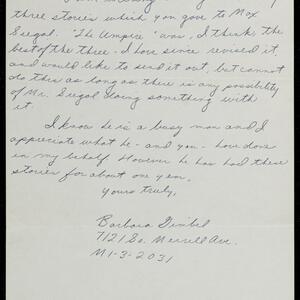 three stories which you gave to Max
Siegal. "The Umpire" was, I think the
best of the three. I have since revised it,
and would like to send it out, but cannot
do this as long as there is any possibility
of Mr. Siegal doing something with
it.
I know he is a busy man and I
appreciate what he - and you - have done
in my behalf. However he has had these
stories for about one year.
Yours truly,
Barbara
7121 So. Merrill Ave.
M1-3-2031